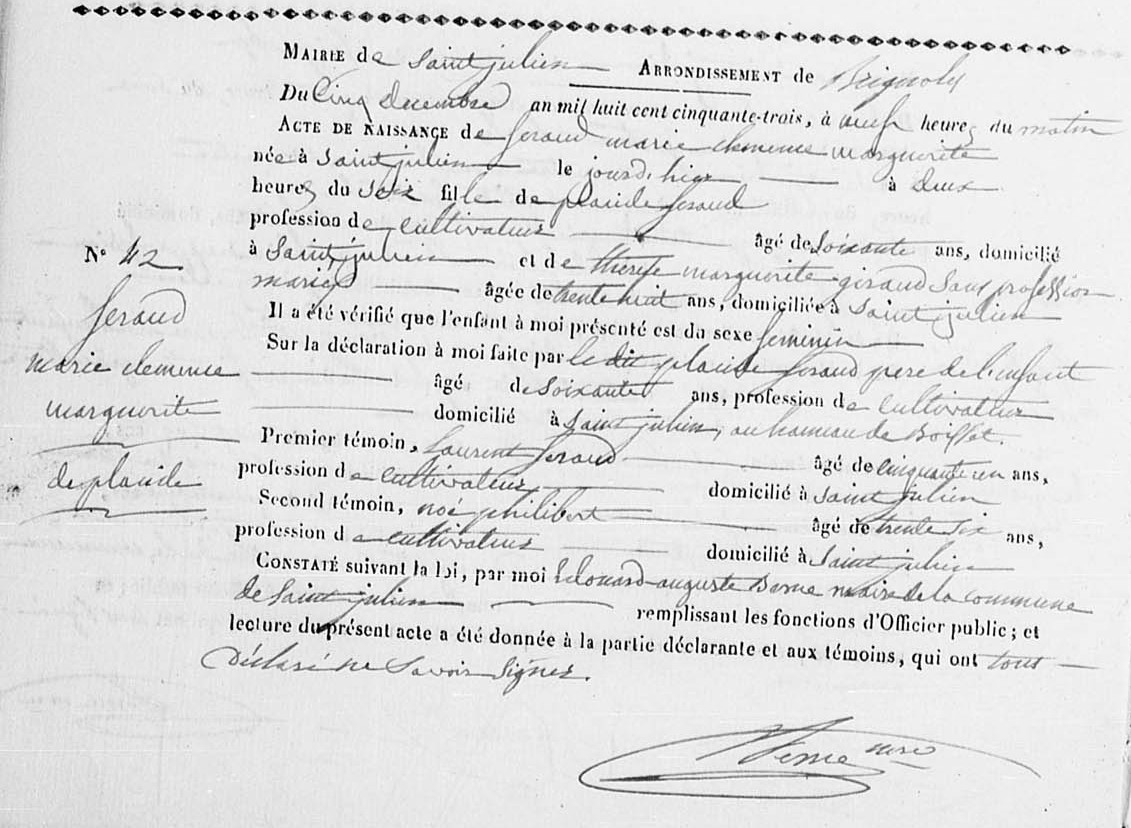 MAIRIE de Saint julien ARRONDISSEMENT de Brignoles
Du Cinq decembre an mil huit cent cinquante-trois, à neuf heures du matin
ACTE DE NAISSANCE de feraud marie clemence marguerite
née à Saint julien le jourd'hier à deux
heures du Soir fille de placide feraud
profession de cultivateur âgé de Soixante ans, domicilié
à Saint julien et de therese marguerite giraud Sans profession
mariés âgée de trente huit ans, domiciliée à Saint julien
Il a été vérifié que l'enfant à moi présenté est du sexe feminin
Sur la déclaration à moi faite par le dit placide feraud pere de l'enfant
âgé de Soixante ans, profession de cultivateur
domicilié à Saint julien, au hameau de Boisset.
Premier témoin, Laurent feraud âgé de cinquante un ans,
profession de cultivateur domicilié à Saint julien
Second témoin, noé philibert âgé de trente six ans,
profession de cultivateur domicilié à Saint julien
CONSTATÉ suivant la loi, par moi Edouard auguste Berne maire de la commune
de Saint julien remplissant les fonctions d'Officier public; et
lecture du présent acte a été donnée à la partie déclarante et aux témoins, qui ont tous
Déclaré ne Savoir Signer.
N° 42
feraud
marie clemence
marguerite
de placide